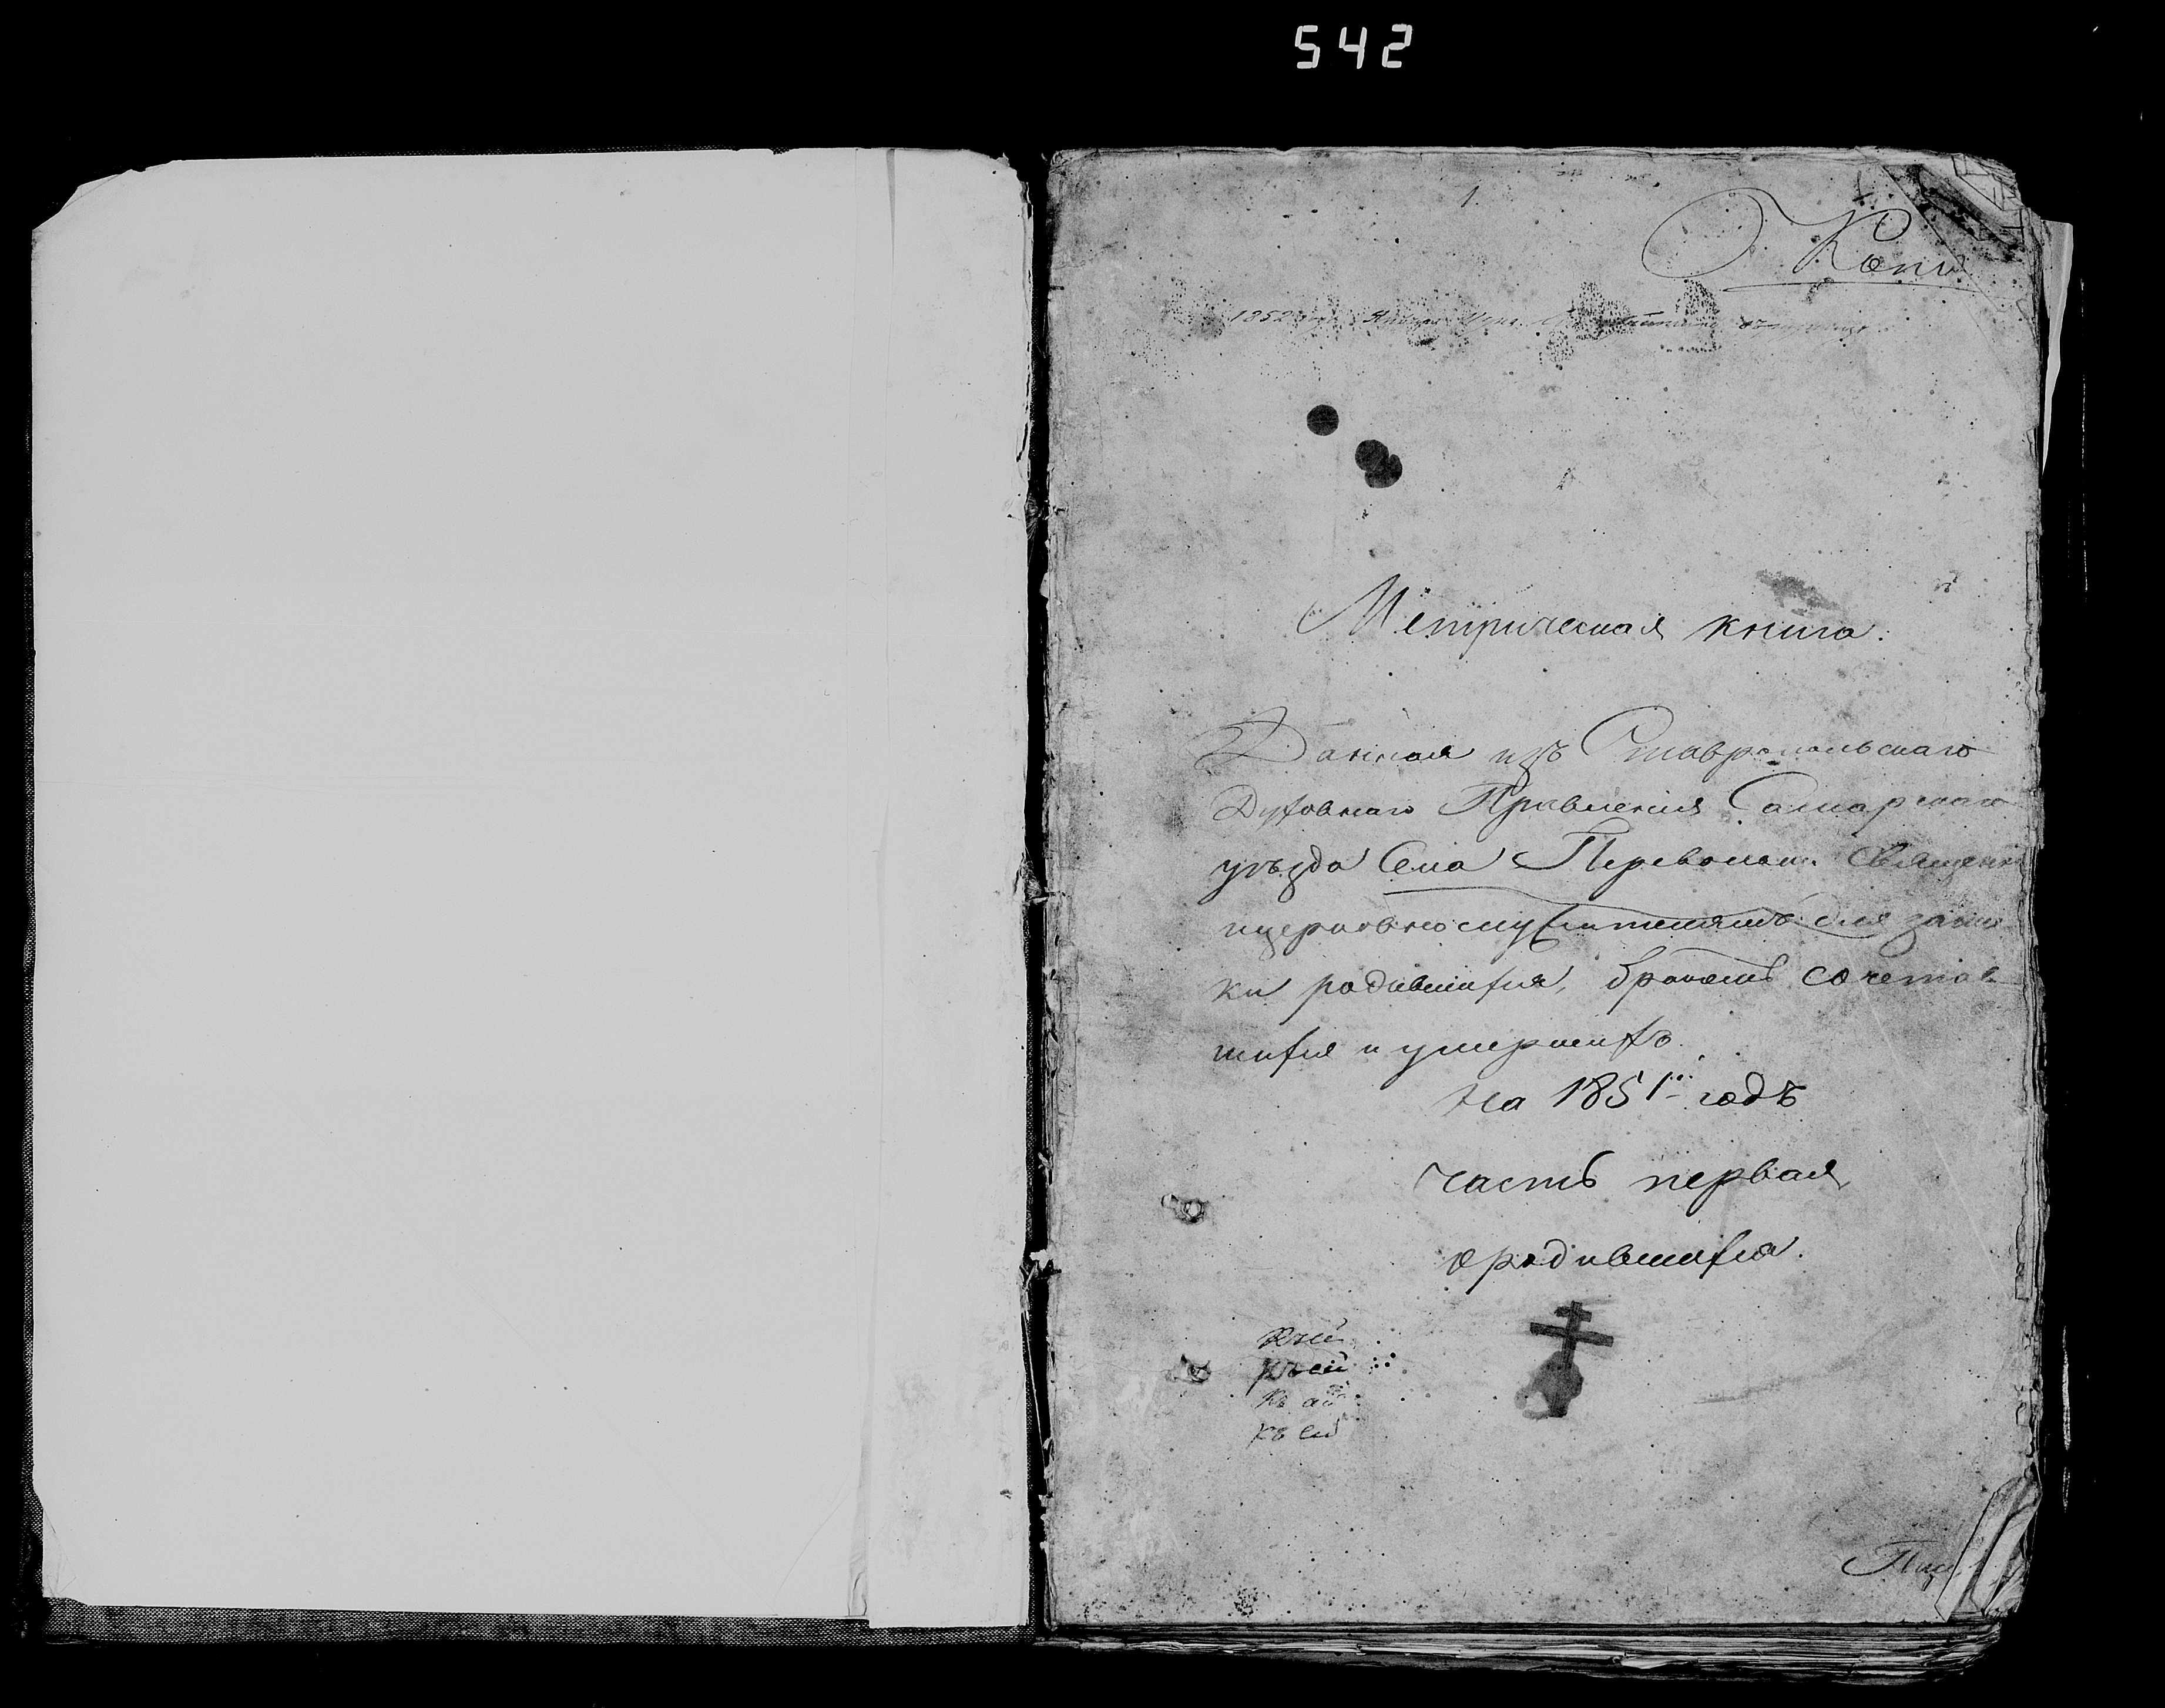 542
1.
Копи
1852
Метрическая книга.
Данная изъ Ставропольскаго
Духовнаго Правления Самарскаго
уѣзда Села Переволокъ Священно
ицерковно служителямъ для запис
ки родившихся, бракомъ сочетав
шихся и умершихъ.
На 1851й годъ
часть первая
ородившихся.
къ ей
къ ей